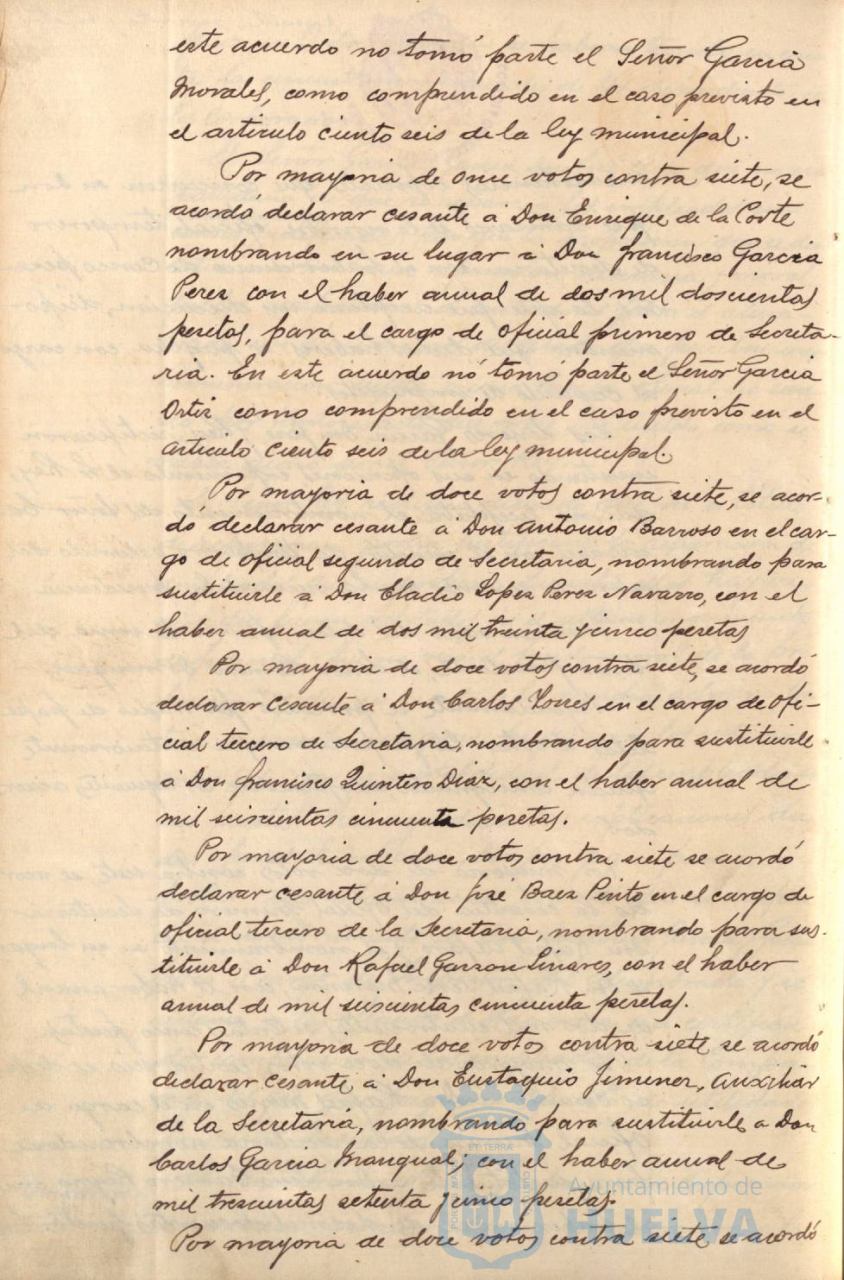 este acuerdo no tomó parte el Señor Garcia
Morales, como comprendido en el caso previsto en
el articulo ciento seis de la ley municipal.
Por mayoria de once votos contra siete, se
acordó declarar cesante á Don Enrique de la Corte
nombrando en su lugar á Don francisco Garcia
Perez con el haber anual de dos mil doscientas
pesetas, para el cargo de oficial primero de Secreta-
ria. En este acuerdo nó tomó parte el Señor Garcia
Ortiz como comprendido en el caso previsto en el
articulo ciento seis de la ley municipal.
Por mayoria de doce votos contra siete, se acor-
dó declarar cesante á Don Antonio Barroso en el car-
go de oficial segundo de Secretaria, nombrando para
sustituirle á Don Eladio Lopez Perez Navarro, con el
haber anual de dos mil treinta y cinco pesetas
Por mayoria de doce votos contra siete, se acordó
declarar cesante á Don Carlos Torres en el cargo de ofi-
cial tercero de Secretaria, nombrando para sustituirle
á Don francisco Quintero Diaz, con el haber anual de
mil seiscientas cincuenta pesetas.
Por mayoria de doce votos contra siete se acordó
declarar cesante á Don José Baez Pinto en el cargo de
oficial tercero de la Secretaria, nombrando para sus-
tituirle á Don Rafael Garzon Linares, con el haber
anual de mil seiscientas cincuenta pesetas.
Por mayoria de doce votos contra siete se acordó
declarar cesante á Don Eustaquio Jimenez, Auxiliar
de la Secretaria, nombrando para sustituirle a Don
Carlos Garcia Mangual; con el haber anual de
mil trescientas setenta y cinco pesetas.
Por mayoria de doce votos contra siete se acordó
Ayuntamiento de
HUELVA